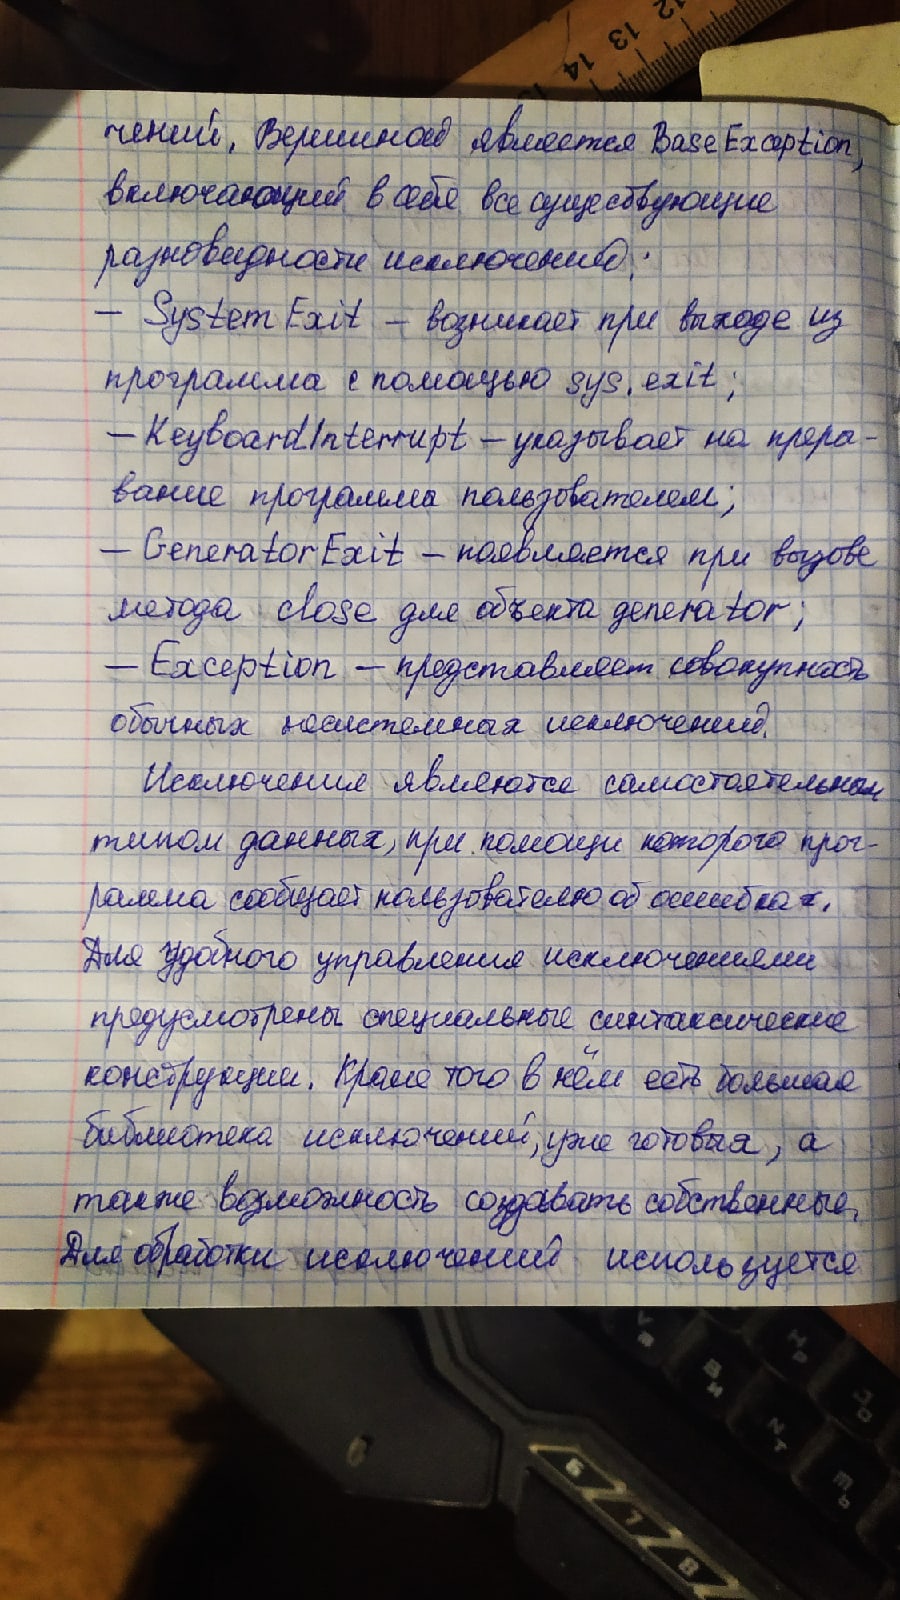 12 13 14 15
чений. Вершиной является BaseException,
включающий в себя все существующие
разновидности исключений:
— SystemExit — возникает при выходе из
программы с помощью sys.exit;
— KeyboardInterrupt — указывает на преры-
вание программы пользователем;
— GeneratorExit — появляется при вызове
метода close для объекта generator;
— Exception — представляет совокупность
обычных несистемных исключений.
Исключения являются самостоятельным
типом данных, при помощи которого прог-
рамма сообщает пользователю об ошибках.
Для удобного управления исключениями
предусмотрены специальные синтаксические
конструкции. Кроме того в нём есть большая
библиотека исключений, уже готовых, а
также возможность создавать собственные.
Для обработки исключений используется
6 7 8